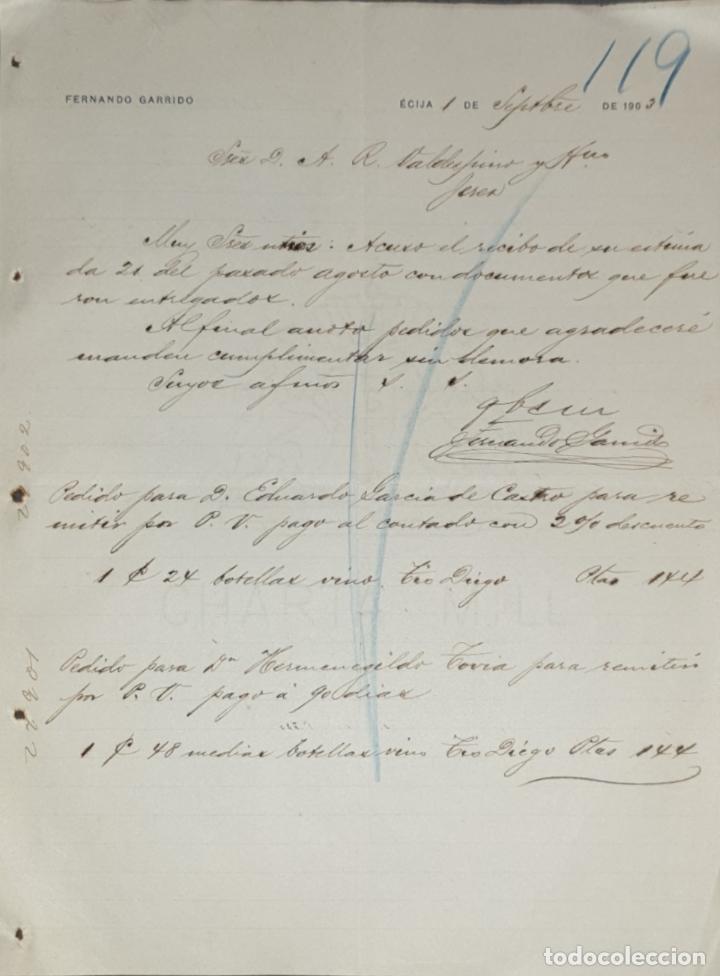 119
FERNANDO GARRIDO
ÉCIJA 1 DE Septbre DE 1903
Sres D. A. R. Valdespino y Hno
Jerez
Muy Sres mios: Acuso el recibo de su estima
da 21 del pasado agosto con documentos que fue
ron entregados.
Al final anoto pedidos que agradeceré
manden cumplimentar sin demora.
Suyos afmos S. S.
q b s m
Fernando Garrido
22902
Pedido para D. Eduardo Garcia de Castro para re
mitir por P. V. pago al contado con 2% descuento
1 ₵ 24 botellas vino Tio Diego Ptas 144
CHARTA MILL
22901
Pedido para Dn Hermenegildo Tovia para remitir
por P. V. pago á 90 dias
1 ₵ 48 medias botellas vino Tio Diego Ptas 144
todocoleccion